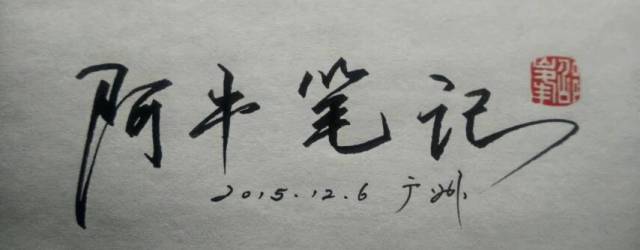 阿牛笔记
2015.12.6 广州